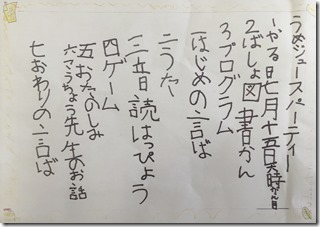 うめジュースパーティー
1やる日七月十五日
2ばしょ図書かん
3プログラム
一はじめの言ば
二うた
三音読はっぴょう
四ゲーム
五おたのしみ
六こうちょう先生のお話
七おわりの言ば